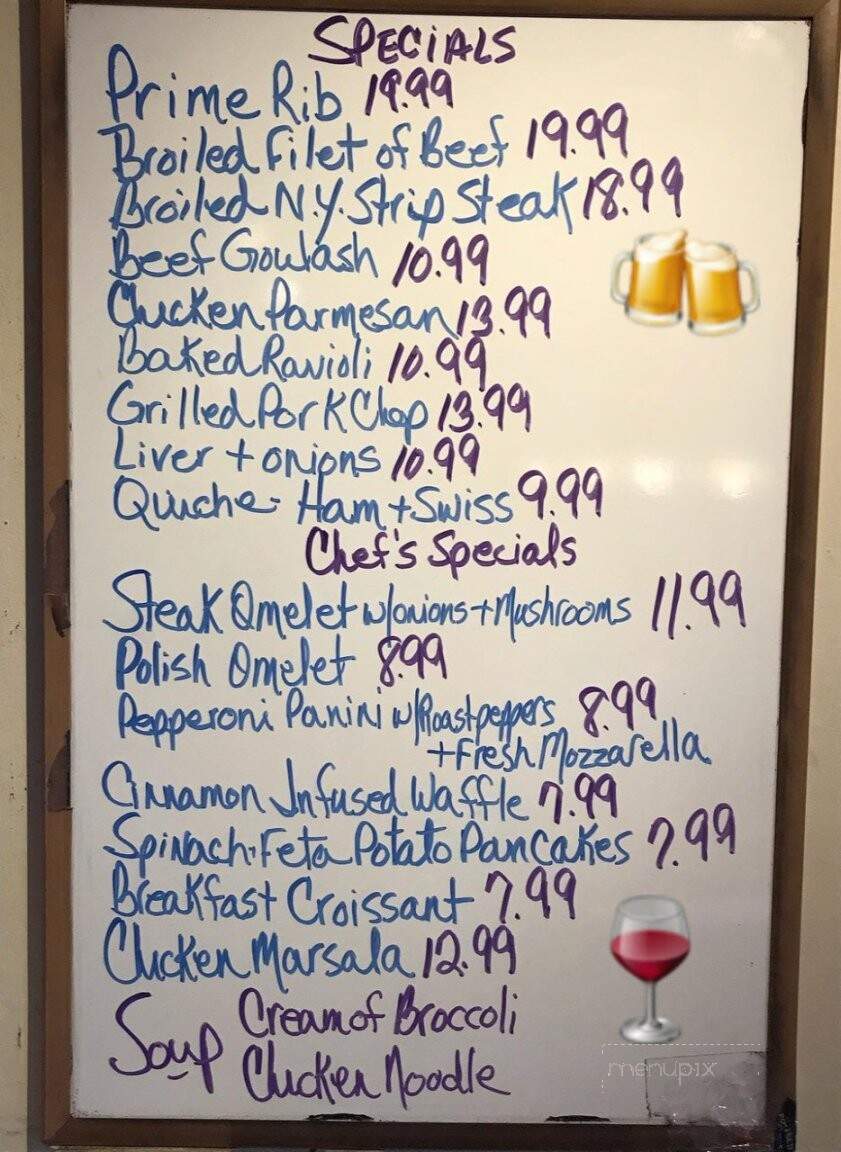 SPECIALS
Prime Rib 19.99
Broiled Filet of Beef 19.99
Broiled N.Y. Strip Steak 18.99
Beef Goulash 10.99
Chicken Parmesan 13.99
Baked Ravioli 10.99
Grilled Pork Chop 13.99
Liver + onions 10.99
Quiche- Ham + Swiss 9.99
Chef's Specials
Steak Omelet w/onions + Mushrooms 11.99
Polish Omelet 8.99
Pepperoni Panini w/Roast peppers 8.99
+ Fresh Mozzarella
Cinnamon Infused Waffle 7.99
Spinach & Feta Potato Pancakes 7.99
Breakfast Croissant 7.99
Chicken Marsala 12.99
Soup Cream of Broccoli
Chicken Noodle
menupix